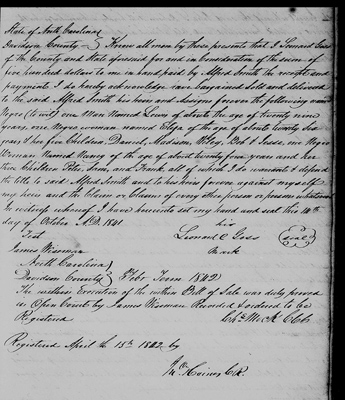 State of North Carolina
Davidson County } Know all men by these presents that I Leonard Goss
of the County and State aforesaid for and in Consideration of the sum of
five hundred dollars to me in hand paid by Alfred Smith the receipt and
payments I do hereby acknowledge have bargained Sold and delivered
to the said Alfred Smith his heirs and assigns forever the following named
Negroes (to wit) one Man Named Lewis of about the age of twenty nine
years, one Negro woman named of the age of about twenty six
years & her five Children Daniel, Madison, Bob & Jesse, one Negro
Woman Named Nancy of the age of about twenty four years and her
three Children Peter, Sam, and Frank, all of which I do warrants & defend
the title to said Alfred Smith and to his heirs forever against myself
my heirs and the Claim or Claims of every other person or persons whatsoever
In witness whereof I have hereunto set my hand and seal this 14th
day of October A.D. 1841
Test his
James Wiseman Leonard C Goss Seal
mark
North Carolina
Davidson County } Feb. Term 1842
The written Execution of the within Bill of Sale was duly proved
in Open Court by James Wiseman Recorded & ordered to be
Registered Chs. Mock Clk
Registered April the 15th 1842 by
Haines P.R.